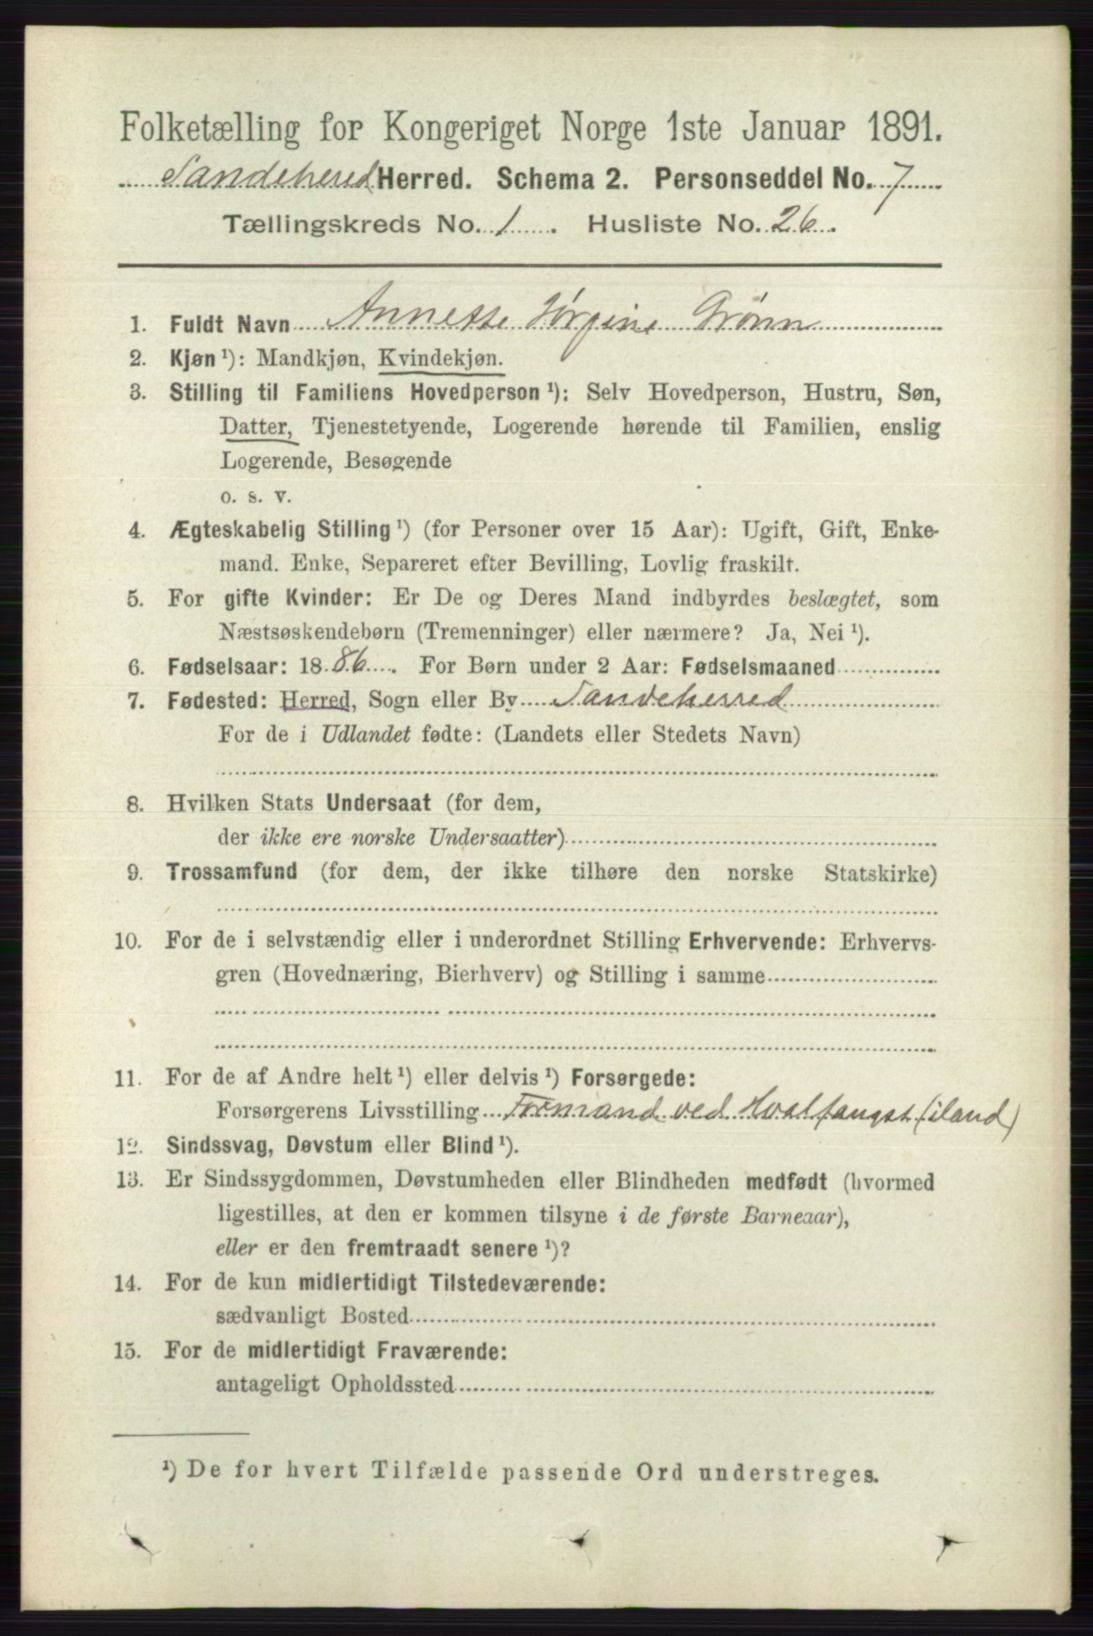 Folketælling for Kongeriget Norge 1ste Januar 1891.
Sandeherred Herred. Schema 2. Personseddel No. 7
Tællingskreds No. 1. Husliste No. 26.
1. Fuldt Navn Annette Jørgine Grønn
2. Kjøn ¹): Mandkjøn, Kvindekjøn.
3. Stilling til Familiens Hovedperson ¹): Selv Hovedperson, Hustru, Søn,
Datter, Tjenestetyende, Logerende hørende til Familien, enslig
Logerende, Besøgende
o. s. v.
4. Ægteskabelig Stilling ¹) (for Personer over 15 Aar): Ugift, Gift, Enke-
mand. Enke, Separeret efter Bevilling, Lovlig fraskilt.
5. For gifte Kvinder: Er De og Deres Mand indbyrdes beslægtet, som
Næstsøskendebørn (Tremenninger) eller nærmere? Ja, Nei ¹).
6. Fødselsaar: 1886. For Børn under 2 Aar: Fødselsmaaned
7. Fødested: Herred, Sogn eller By Sandeherred
For de i Udlandet fødte: (Landets eller Stedets Navn)
8. Hvilken Stats Undersaat (for dem,
der ikke ere norske Undersaatter)
9. Trossamfund (for dem, der ikke tilhøre den norske Statskirke)
10. For de i selvstændig eller i underordnet Stilling Erhvervende: Erhvervs-
gren (Hovednæring, Bierhverv) og Stilling i samme
11. For de af Andre helt ¹) eller delvis ¹) Forsørgede:
Forsørgerens Livsstilling Formand ved Hvalfangst (iland)
12. Sindssvag, Døvstum eller Blind ¹).
13. Er Sindssygdommen, Døvstumheden eller Blindheden medfødt (hvormed
ligestilles, at den er kommen tilsyne i de første Barneaar),
eller er den fremtraadt senere ¹)?
14. For de kun midlertidigt Tilstedeværende:
sædvanligt Bosted
15. For de midlertidigt Fraværende:
antageligt Opholdssted
¹) De for hvert Tilfælde passende Ord understreges.